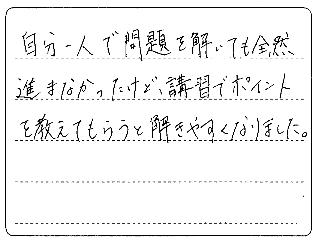 自分一人で問題を解いても全然
進まなかったけど、講習でポイント
を教えてもらうと解きやすくなりました。